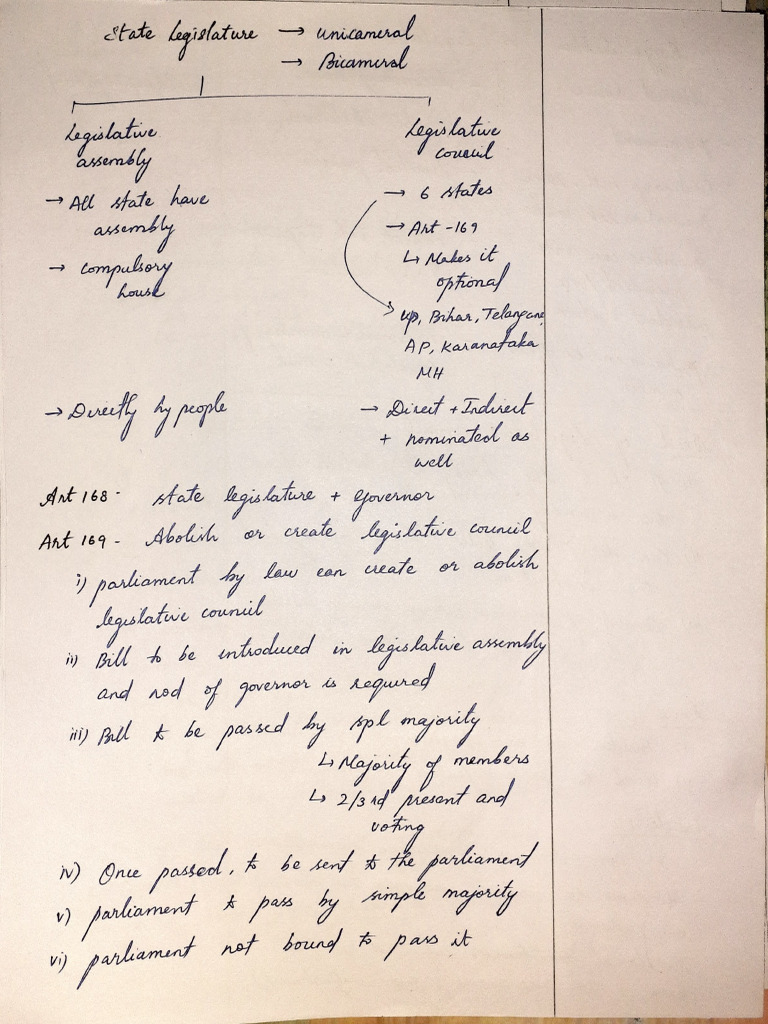 State Legislature → Unicameral
→ Bicameral
Legislative
assembly
→ All state have
assembly
→ compulsory
house
→ Directly by people
Legislative
council
→ 6 states
→ Art -169
↳ Makes it
optional
up, Bihar, Telangana,
AP, Karanataka
MH
→ Direct + Indirect
+ nominated as
well
Art 168 - state legislature + governor
Art 169 - Abolish or create legislative council
i) parliament by law can create or abolish
legislative council
ii) Bill to be introduced in legislative assembly
and nod of governor is required
iii) Bill to be passed by spl majority
↳ Majority of members
↳ 2/3rd present and
voting
iv) Once passed, to be sent to the parliament
v) parliament to pass by simple majority
vi) parliament not bound to pass it